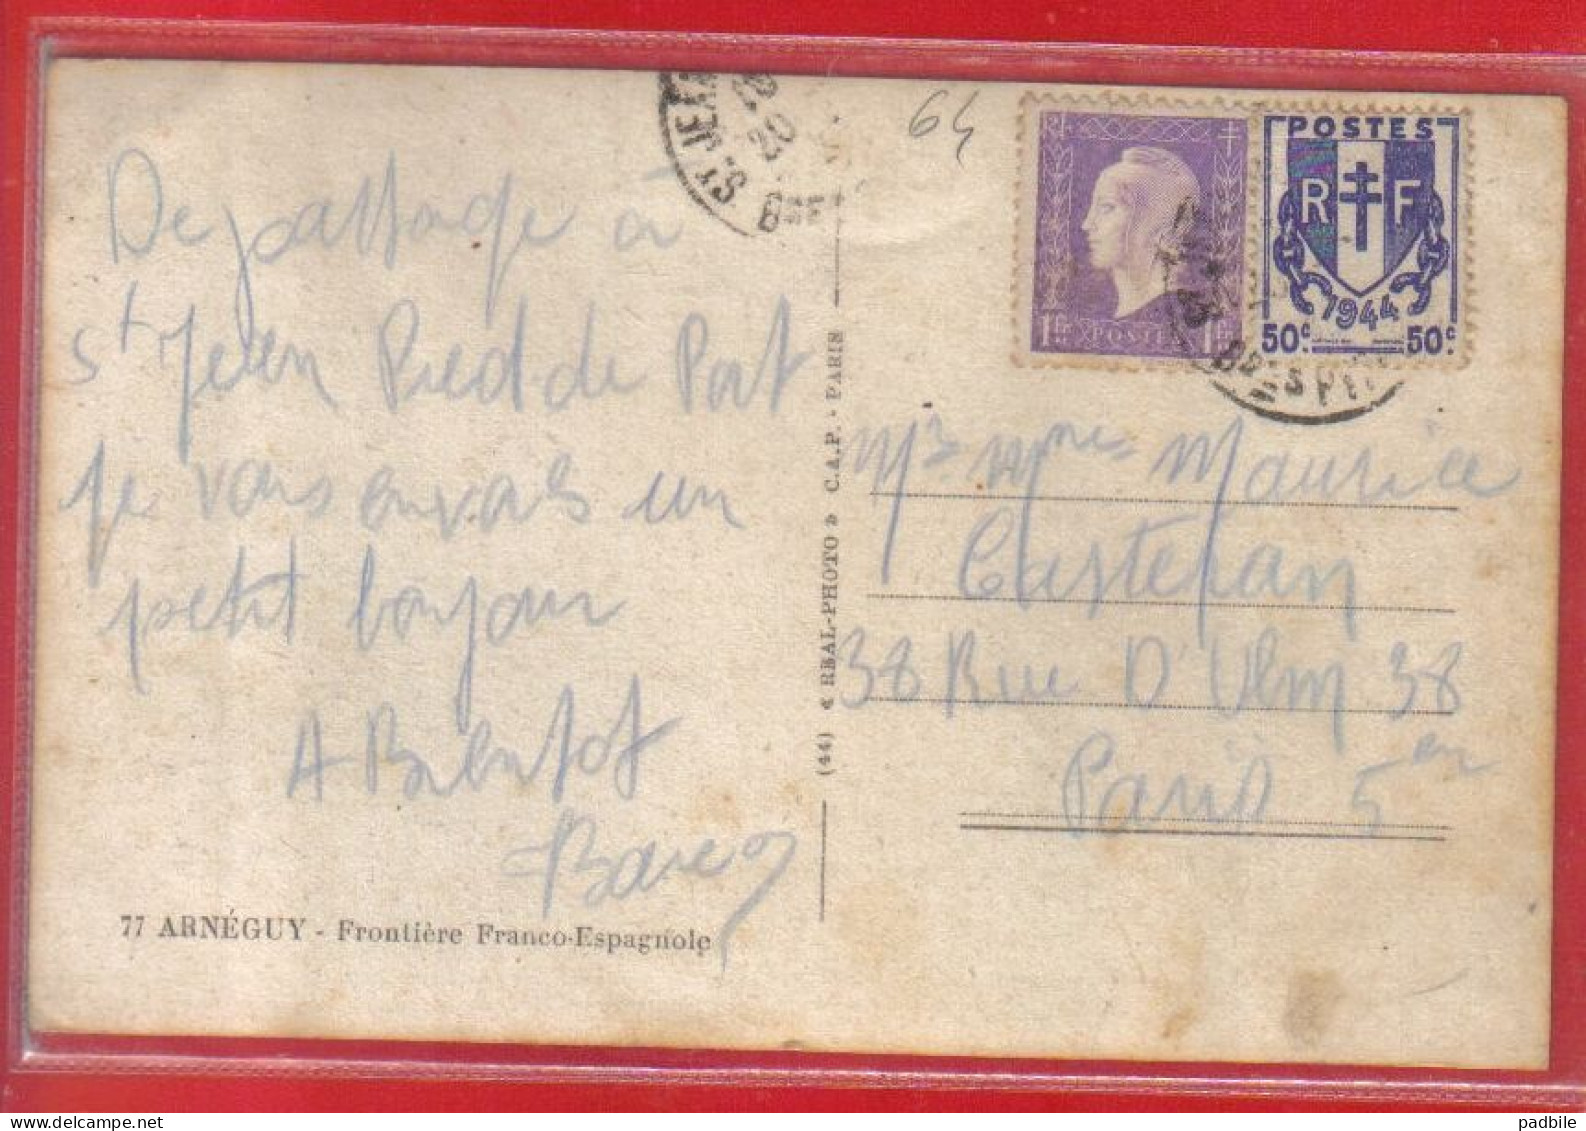 De passage à
St Jean Pied de Port
je vous envois un
petit bonjour
A Bientot
77 ARNÉGUY - Frontière Franco-Espagnole
(44) « REAL-PHOTO » C.A.P. - PARIS
ST JEAN
20
BSES
64
RF
1Fr POSTES 1Fr
POSTES
R F
1944
50c 50c
BSES PYR
Mr Mme Maurice
Castelan
38 Rue D'Ulm 38
Paris 5em
padbile